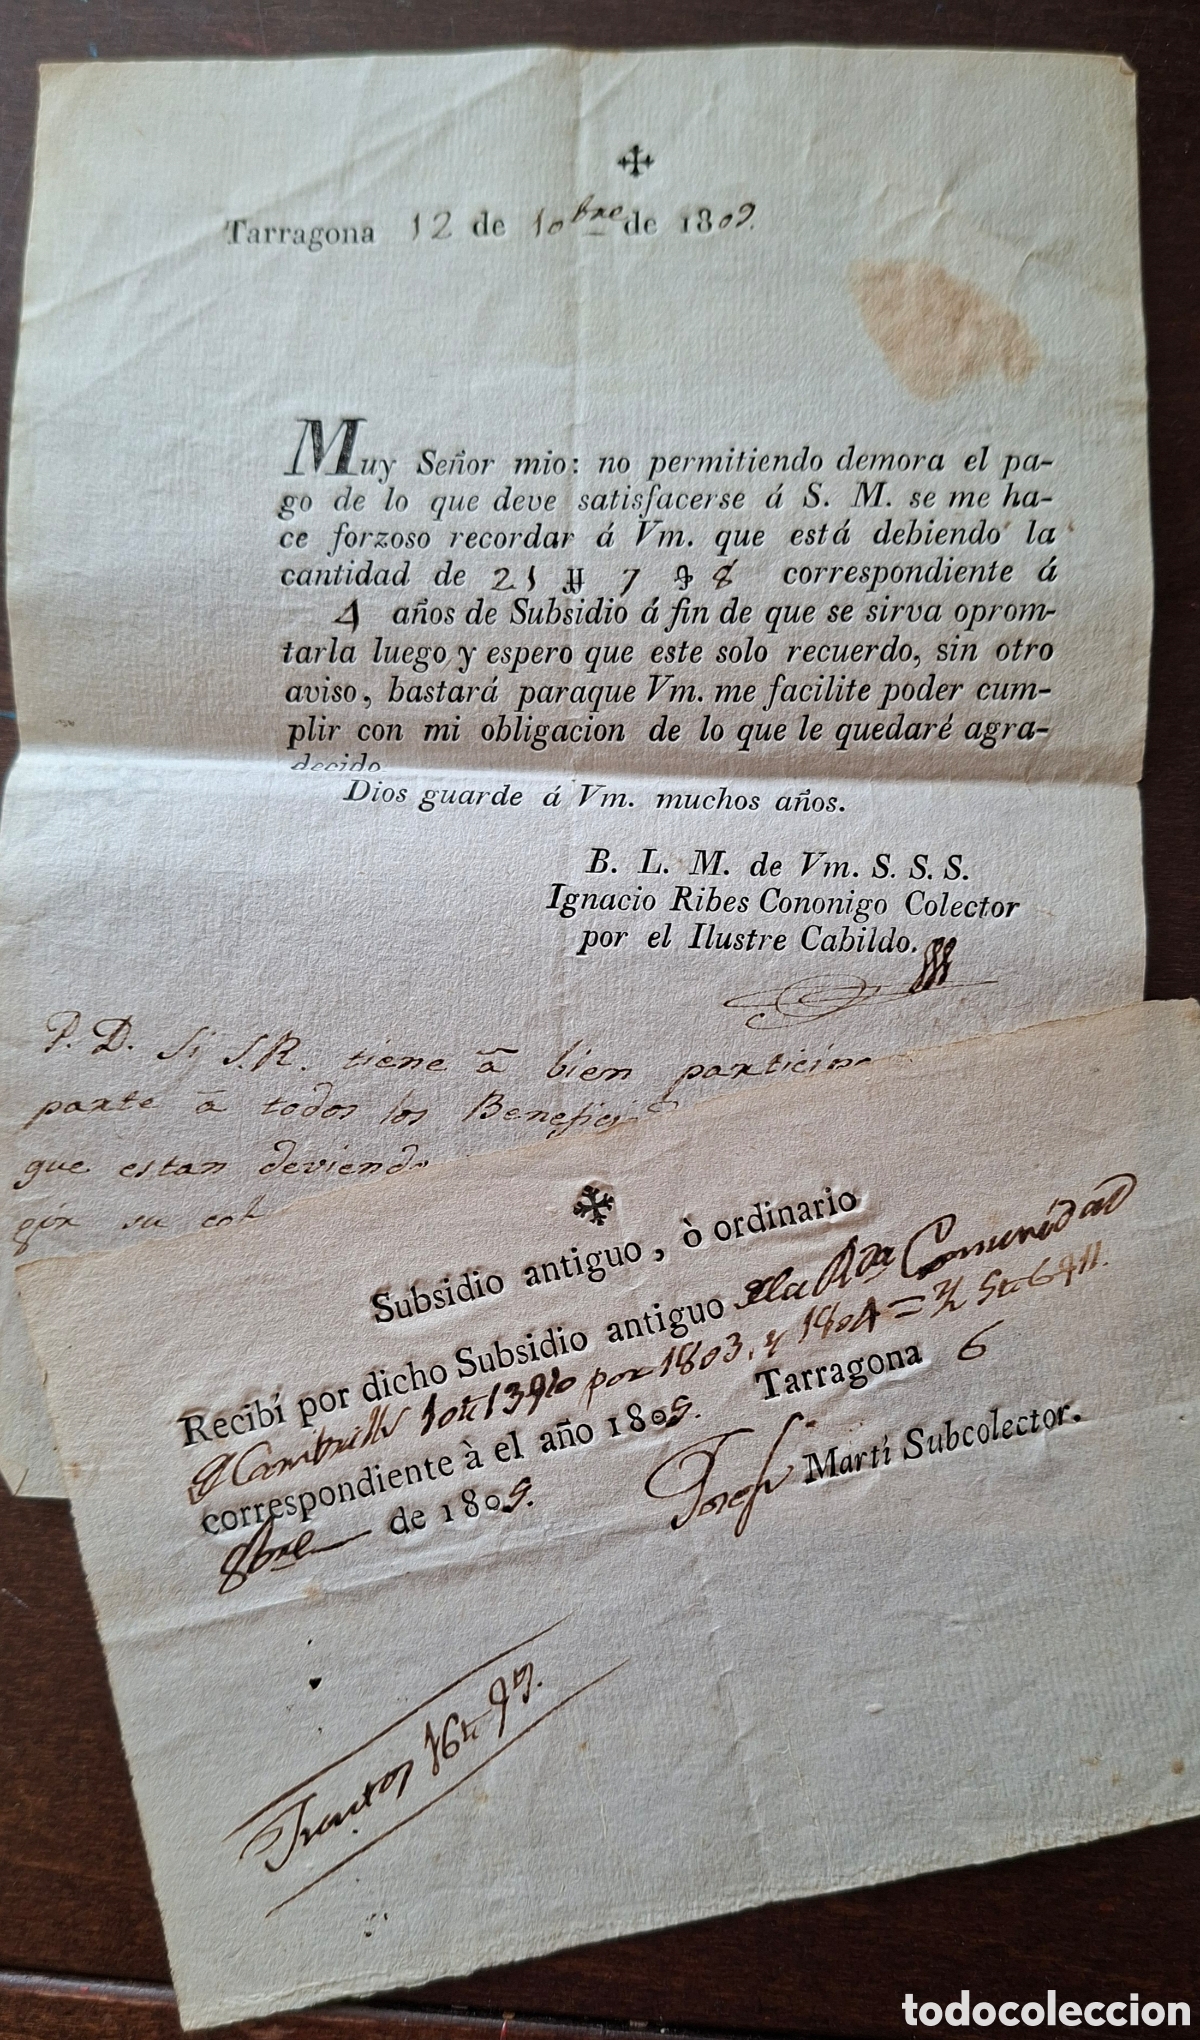 Tarragona 12 de 10bre de 1809.
Muy Señor mio: no permitiendo demora el pa-
go de lo que deve satisfacerse á S. M. se me ha-
ce forzoso recordar á Vm. que está debiendo la
cantidad de 21 ₶ 7 8 correspondiente á
4 años de Subsidio á fin de que se sirva oprom-
tarla luego y espero que este solo recuerdo, sin otro
aviso, bastará paraque Vm. me facilite poder cum-
plir con mi obligacion de lo que le quedaré agra-
decido
Dios guarde á Vm. muchos años.
B. L. M. de Vm. S. S. S.
Ignacio Ribes Cononigo Colector
por el Ilustre Cabildo.
P. D. Si S.R. tiene á bien
parte á todos los
que estan deviendo
su
Subsidio antiguo, ò ordinario
Recibí por dicho Subsidio antiguo dla Rda Comunidad
por 1803, y 1804 =
correspondiente à el año 1805. Tarragona 6
8bre de 1805. Josef Martí Subcolector.
todocoleccion